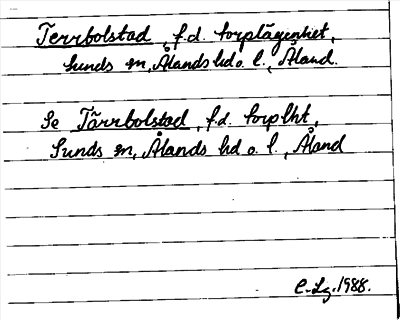 Terrbolstad, f.d. torplägenhet,
Sunds sn, Ålands hd o. l., Åland.
Se Tärrbolstad, f.d. torplht,
Sunds sn, Ålands hd o. l., Åland
C-Lg. 1988.